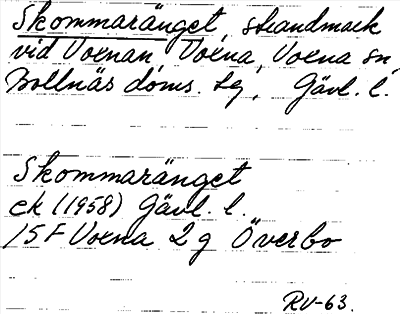 Skommaränget, strandmark
vid Voxnan, Voxna, Voxna sn,
Bollnäs doms. tg, Gävl. l.
Skommaränget
ek (1958) Gävl. l.
15F Voxna 2 g Överbo
RV-63.